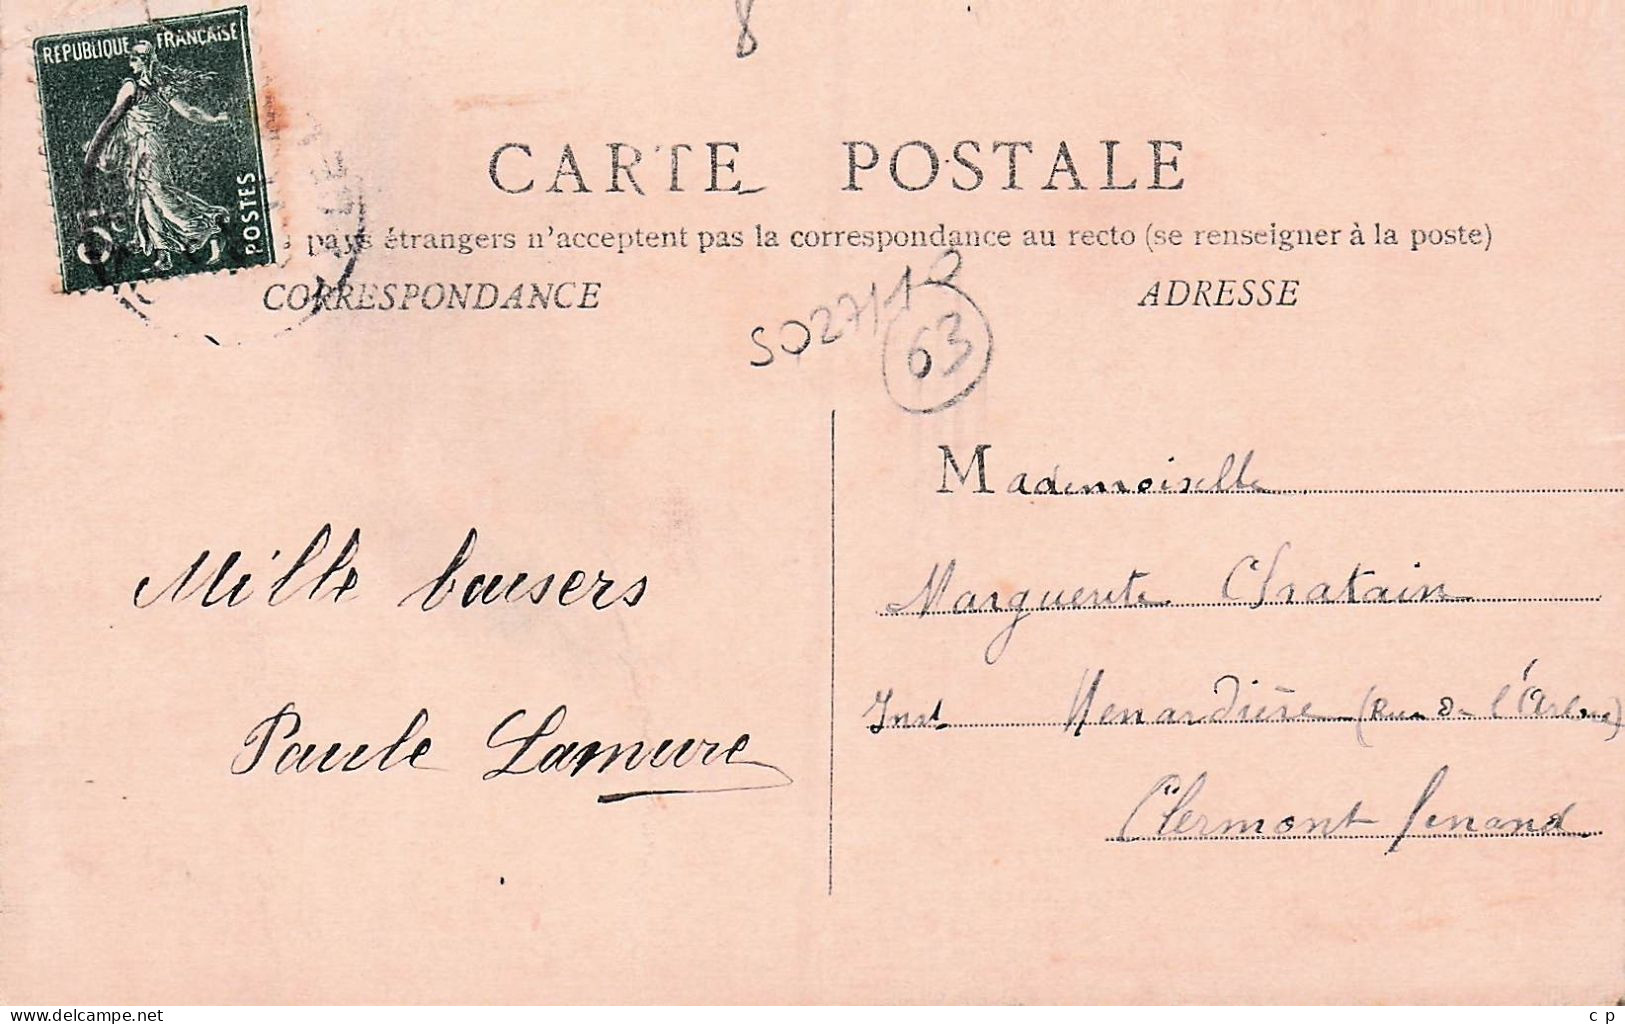 8
REPUBLIQUE FRANÇAISE
POSTES
CARTE POSTALE
pays étrangers n'acceptent pas la correspondance au recto (se renseigner à la poste)
CORRESPONDANCE
ADRESSE
S027/12
63
Mille baisers
Paule Lamure
Mademoiselle
Marguerite Chatain
Inst Menardière (Rue de l'
Clermont Ferrand
delcampe.net
c p